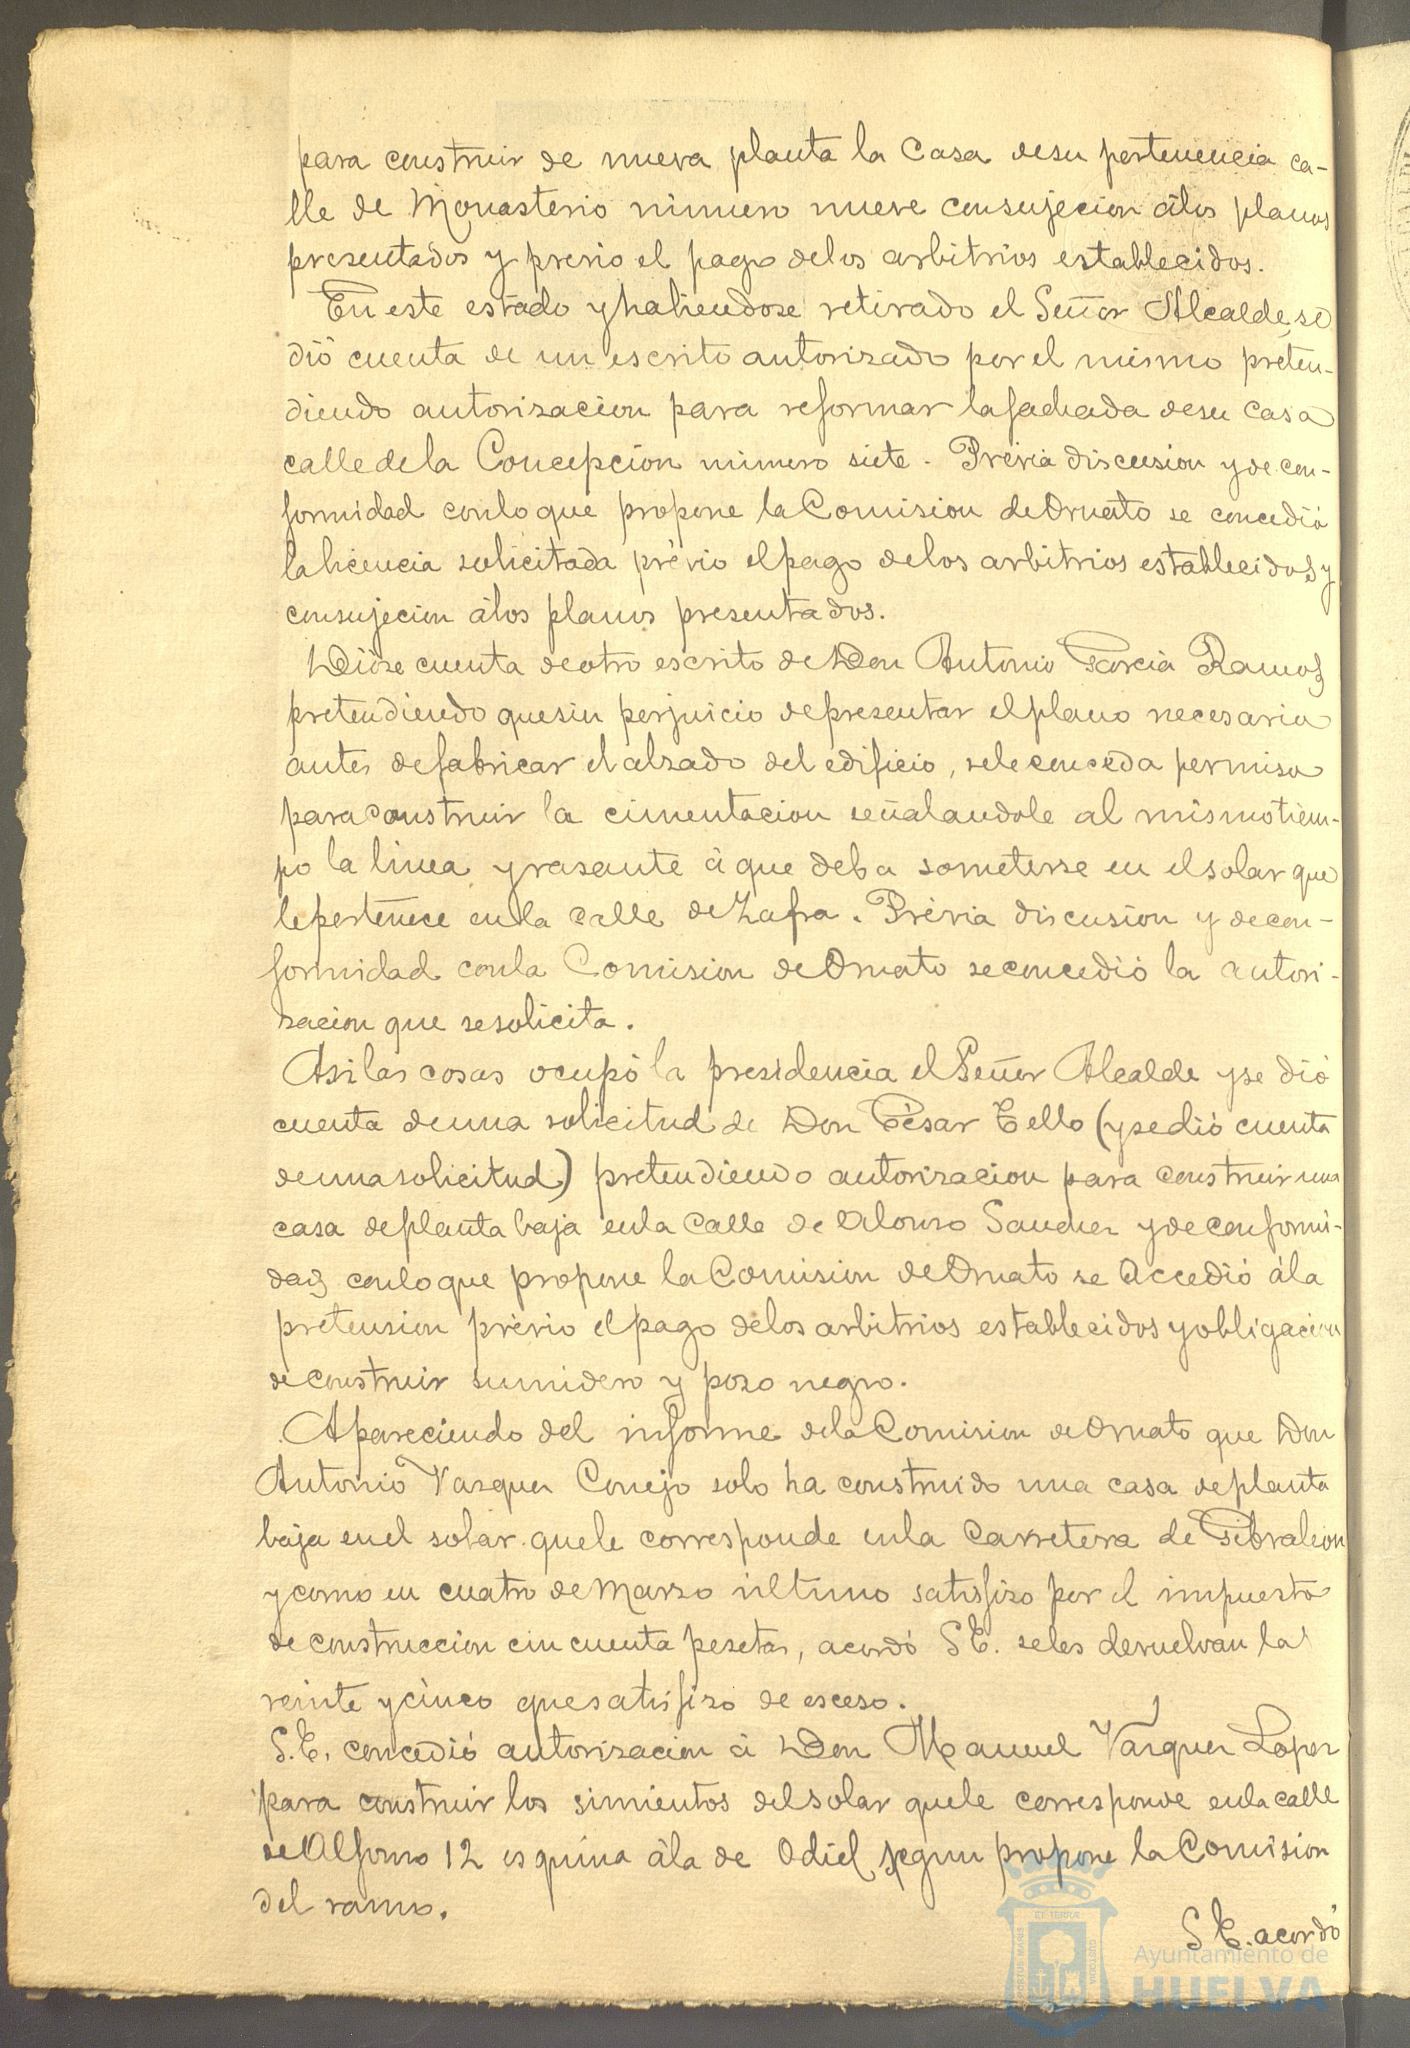 para construir de nueva planta la Casa desu pertenencia ca-
lle de Monasterio número nueve consujecion álos planos
presentados y previo el pago delos arbitrios establecidos.
En este estado y habiendose retirado el Señor Alcalde, se
dió cuenta de un escrito autorizado por el mismo preten-
diendo autorizacion para reformar lafachada desu Casa
calle dela Concepcion número siete. Prévia discusion y de con-
formidad conlo que propone la Comision de Ornato se concedió
lalicencia solicitada prévio elpago delos arbitrios establecidos y
consujecion álos planos presentados.
Dióse cuenta deotro escrito de Don Antonio Garcia Ramos
pretendiendo quesin perjuicio depresentar elplano necesario
antes defabricar el alzado del edificio, sele conceda permiso
para construir la cimentacion señalandole al mismotiem-
po la linea y rasante á que deba someterse en elsolar que
lepertenece enla calle de Zafra. Prévia discusion y decon-
formidad conla Comision de Ornato seconcedió la autori-
zacion que sesolicita.
Asilas cosas ocupó la presidencia el Señor Alcalde yse dió
cuenta deuna solicitud de Don César Tello (ysedió cuenta
deunasolicitud) pretendiendo autorizacion para construir una
casa deplanta baja enla Calle de Alonso Sanchez y de conformi-
dad conloque propone la Comision de Ornato se accedió ála
pretension prévio elpago delos arbitrios establecidos y obligacion
de construir sumidero y pozo negro.
Apareciendo del informe dela Comision de Ornato que Don
Antonio Vazquez Conejo solo ha construido una casa deplanta
baja enel solar quele corresponde enla Carretera de Gibraleon
y como en cuatro de Marzo último satisfizo por el impuesto
de construccion cincuenta pesetas, acordó S.E. seles devuelvan las
veinte ycinco quesatisfizo de esceso.
S.E. concedió autorizacion á Don Manuel Vazquez Lopez
para construir los simientos delsolar quele corresponde enla calle
de Alfonso 12 esquina ála de Odiel segun propone la Comision
del ramo.
S E. acordó
Ayuntamiento de
HUELVA